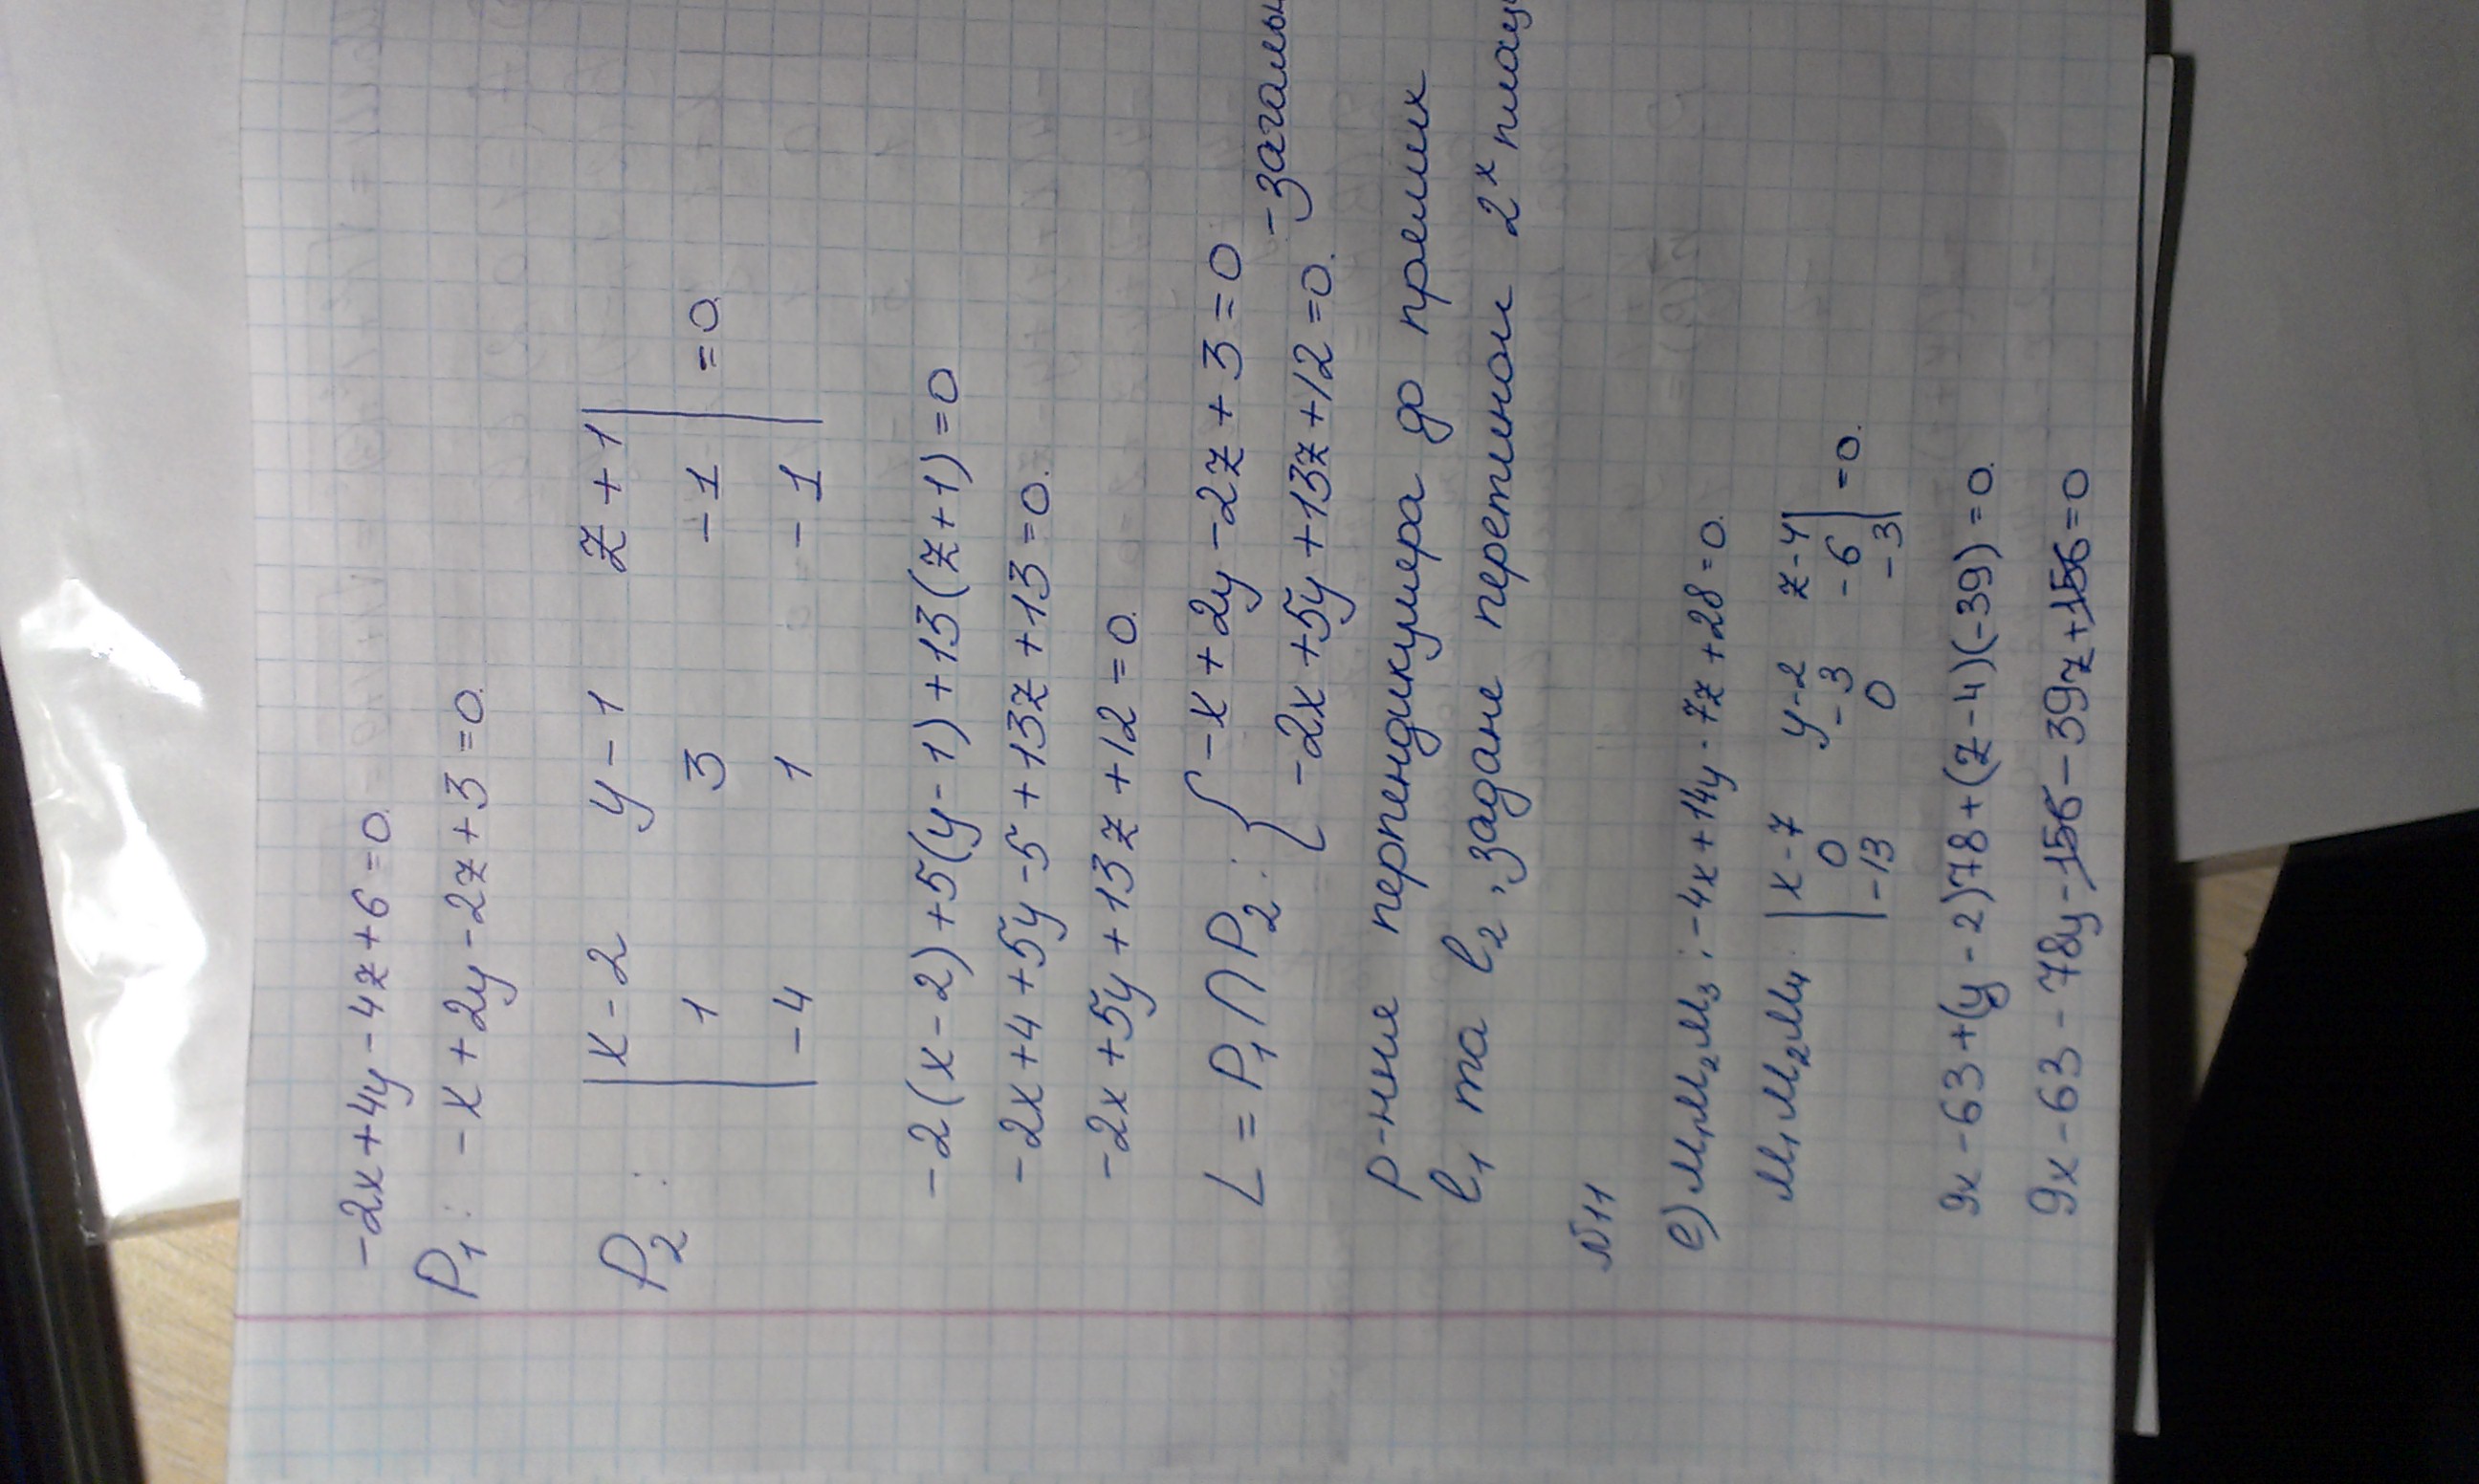 -2x+4y-4z+6=0.
P₁: -x+2y-2z+3=0.
P₂: |x-2 y-1 z+1|
|1 3 -1| =0.
|-4 1 -1|
-2(x-2)+5(y-1)+13(z+1)=0
-2x+4+5y-5+13z+13=0.
-2x+5y+13z+12=0.
L = P₁∩P₂: { -x+2y-2z+3=0
-2x+5y+13z+12=0. -загальн
Р-ння перпендикуляра до прямих
l₁ та l₂, задане перетином 2ˣ площ
№11
е) M₁M₂M₃: -4x+14y-7z+28=0.
M₁M₂M₄: |x-7 y-2 z-4|
|0 -3 -6| =0.
|-13 0 -3|
9x-63+(y-2)78+(z-4)(-39)=0.
9x-63-78y-156-39z+156=0